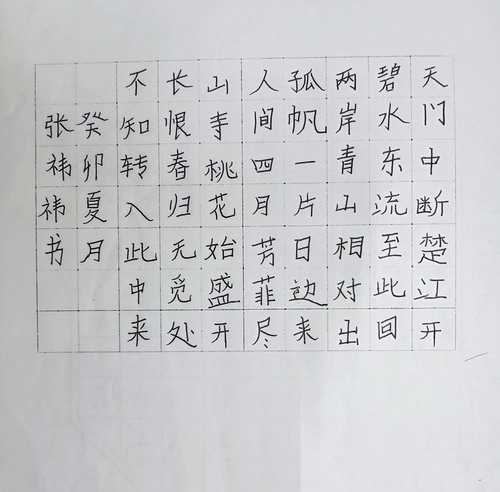 天门中断楚江开
碧水东流至此回
两岸青山相对出
孤帆一片日边来
人间四月芳菲尽
山寺桃花始盛开
长恨春归无觅处
不知转入此中来
癸卯夏月
张祎祎书